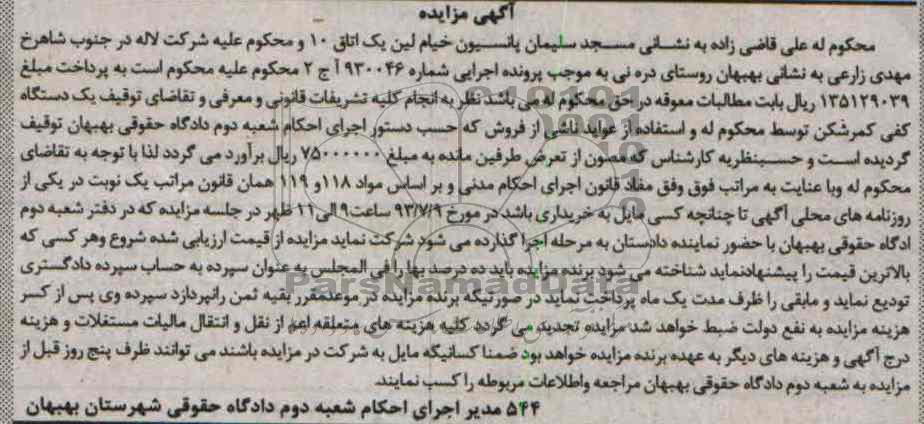 آگهی مزایده
محکوم له علی قاضی زاده به نشانی مسجد سلیمان پانسیون خیام لین یک اتاق ۱۰ و محکوم علیه شرکت لاله در جنوب شاهرخ
مهدی زارعی به نشانی بهبهان روستای دره نی به موجب پرونده اجرایی شماره ۹۳۰۰۴۶ آ ج ۲ محکوم علیه محکوم است به پرداخت مبلغ
۱۳۵۱۲۹۰۳۹ ریال بابت مطالبات معوقه در حق محکوم له می باشد نظر به انجام کلیه تشریفات قانونی و معرفی و تقاضای توقیف یک دستگاه
کفی کمرشکن توسط محکوم له و استفاده از عواید ناشی از فروش که حسب دستور اجرای احکام شعبه دوم دادگاه حقوقی بهبهان توقیف
گردیده است و حسبنظریه کارشناس که مصون از تعرض طرفین مانده به مبلغ ۷۵۰۰۰۰۰۰۰ ریال برآورد می گردد لذا با توجه به تقاضای
محکوم له وبا عنایت به مراتب فوق وفق مفاد قانون اجرای احکام مدنی و بر اساس مواد ۱۱۸و ۱۱۹ همان قانون مراتب یک نوبت در یکی از
روزنامه های محلی آگهی تا چنانچه کسی مایل به خریداری باشد در مورخ ۹۳/۷/۹ ساعت۹الی۱۱ ظهر در جلسه مزایده که در دفتر شعبه دوم
ادگاه حقوقی بهبهان با حضور نماینده دادستان به مرحله اجرا گذارده می شود شرکت نماید مزایده از قیمت ارزیابی شده شروع وهر کسی که
بالاترین قیمت را پیشنهادنماید شناخته می شود برنده مزایده باید ده درصد بها را فی المجلس به عنوان سپرده به حساب سپرده دادگستری
تودیع نماید و مابقی را ظرف مدت یک ماه پرداخت نماید در صورتیکه برنده مزایده در موعدمقرر بقیه ثمن رانپردازد سپرده وی پس از کسر
هزینه مزایده به نفع دولت ضبط خواهد شد مزایده تجدید می گردد کلیه هزینه های متعلقه اعم از نقل و انتقال مالیات مستغلات و هزینه
درج آگهی و هزینه های دیگر به عهده برنده مزایده خواهد بود ضمنا کسانیکه مایل به شرکت در مزایده باشند می توانند ظرف پنج روز قبل از
مزایده به شعبه دوم دادگاه حقوقی بهبهان مراجعه واطلاعات مربوطه را کسب نمایند.
۵۴۴ مدیر اجرای احکام شعبه دوم دادگاه حقوقی شهرستان بهبهان
ParsNamadData